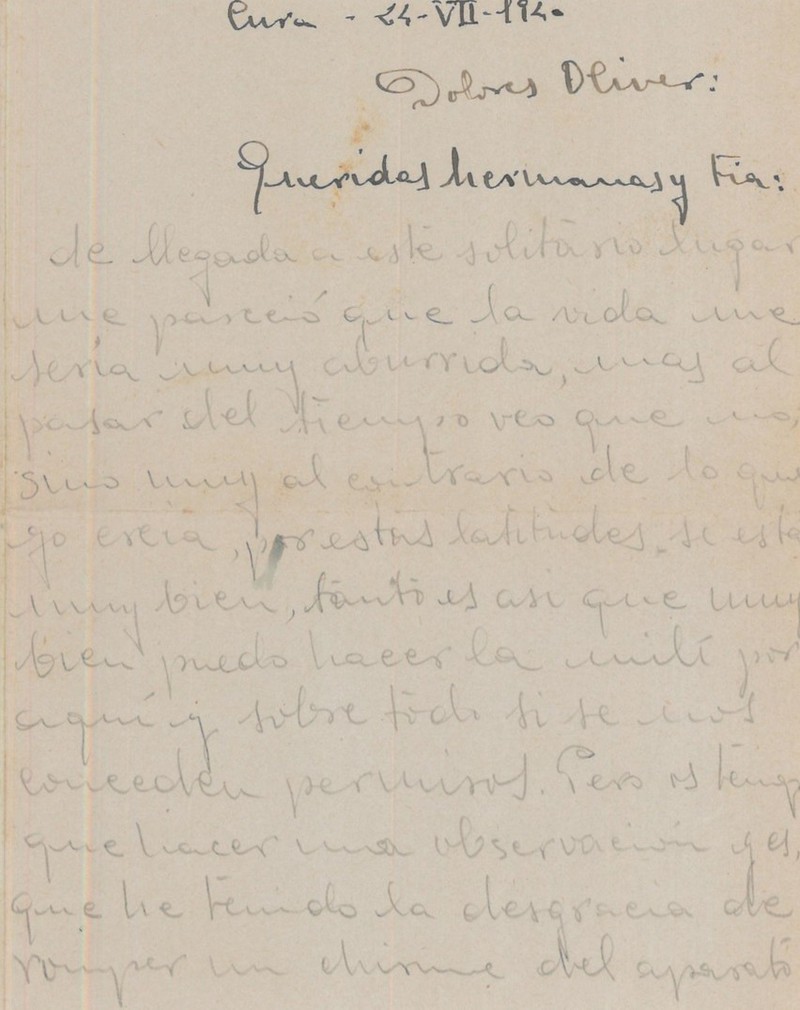 Cura - 24-VII-1940
Dolores Oliver:
Queridas hermanas y tia:
de llegada a este solitário lugar
me pareció que la vida me
sería muy aburrida, mas al
pasar del tiempo veo que no,
sino muy al contrario de lo que
yo creia, por estas latitudes, se está
muy bien, tanto es asi que muy
bien puedo hacer la mili por
aquí y sobre todo si se nos
conceden permisos. Pero os tengo
que hacer una observación y es,
que he tenido la desgracia de
romper un chisme del aparato